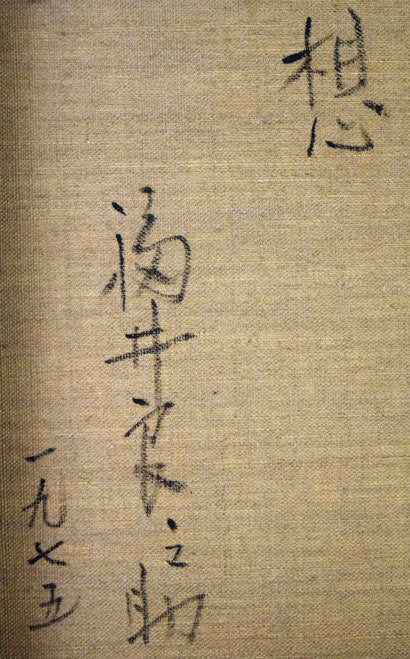 想
福井良之助
一九七五